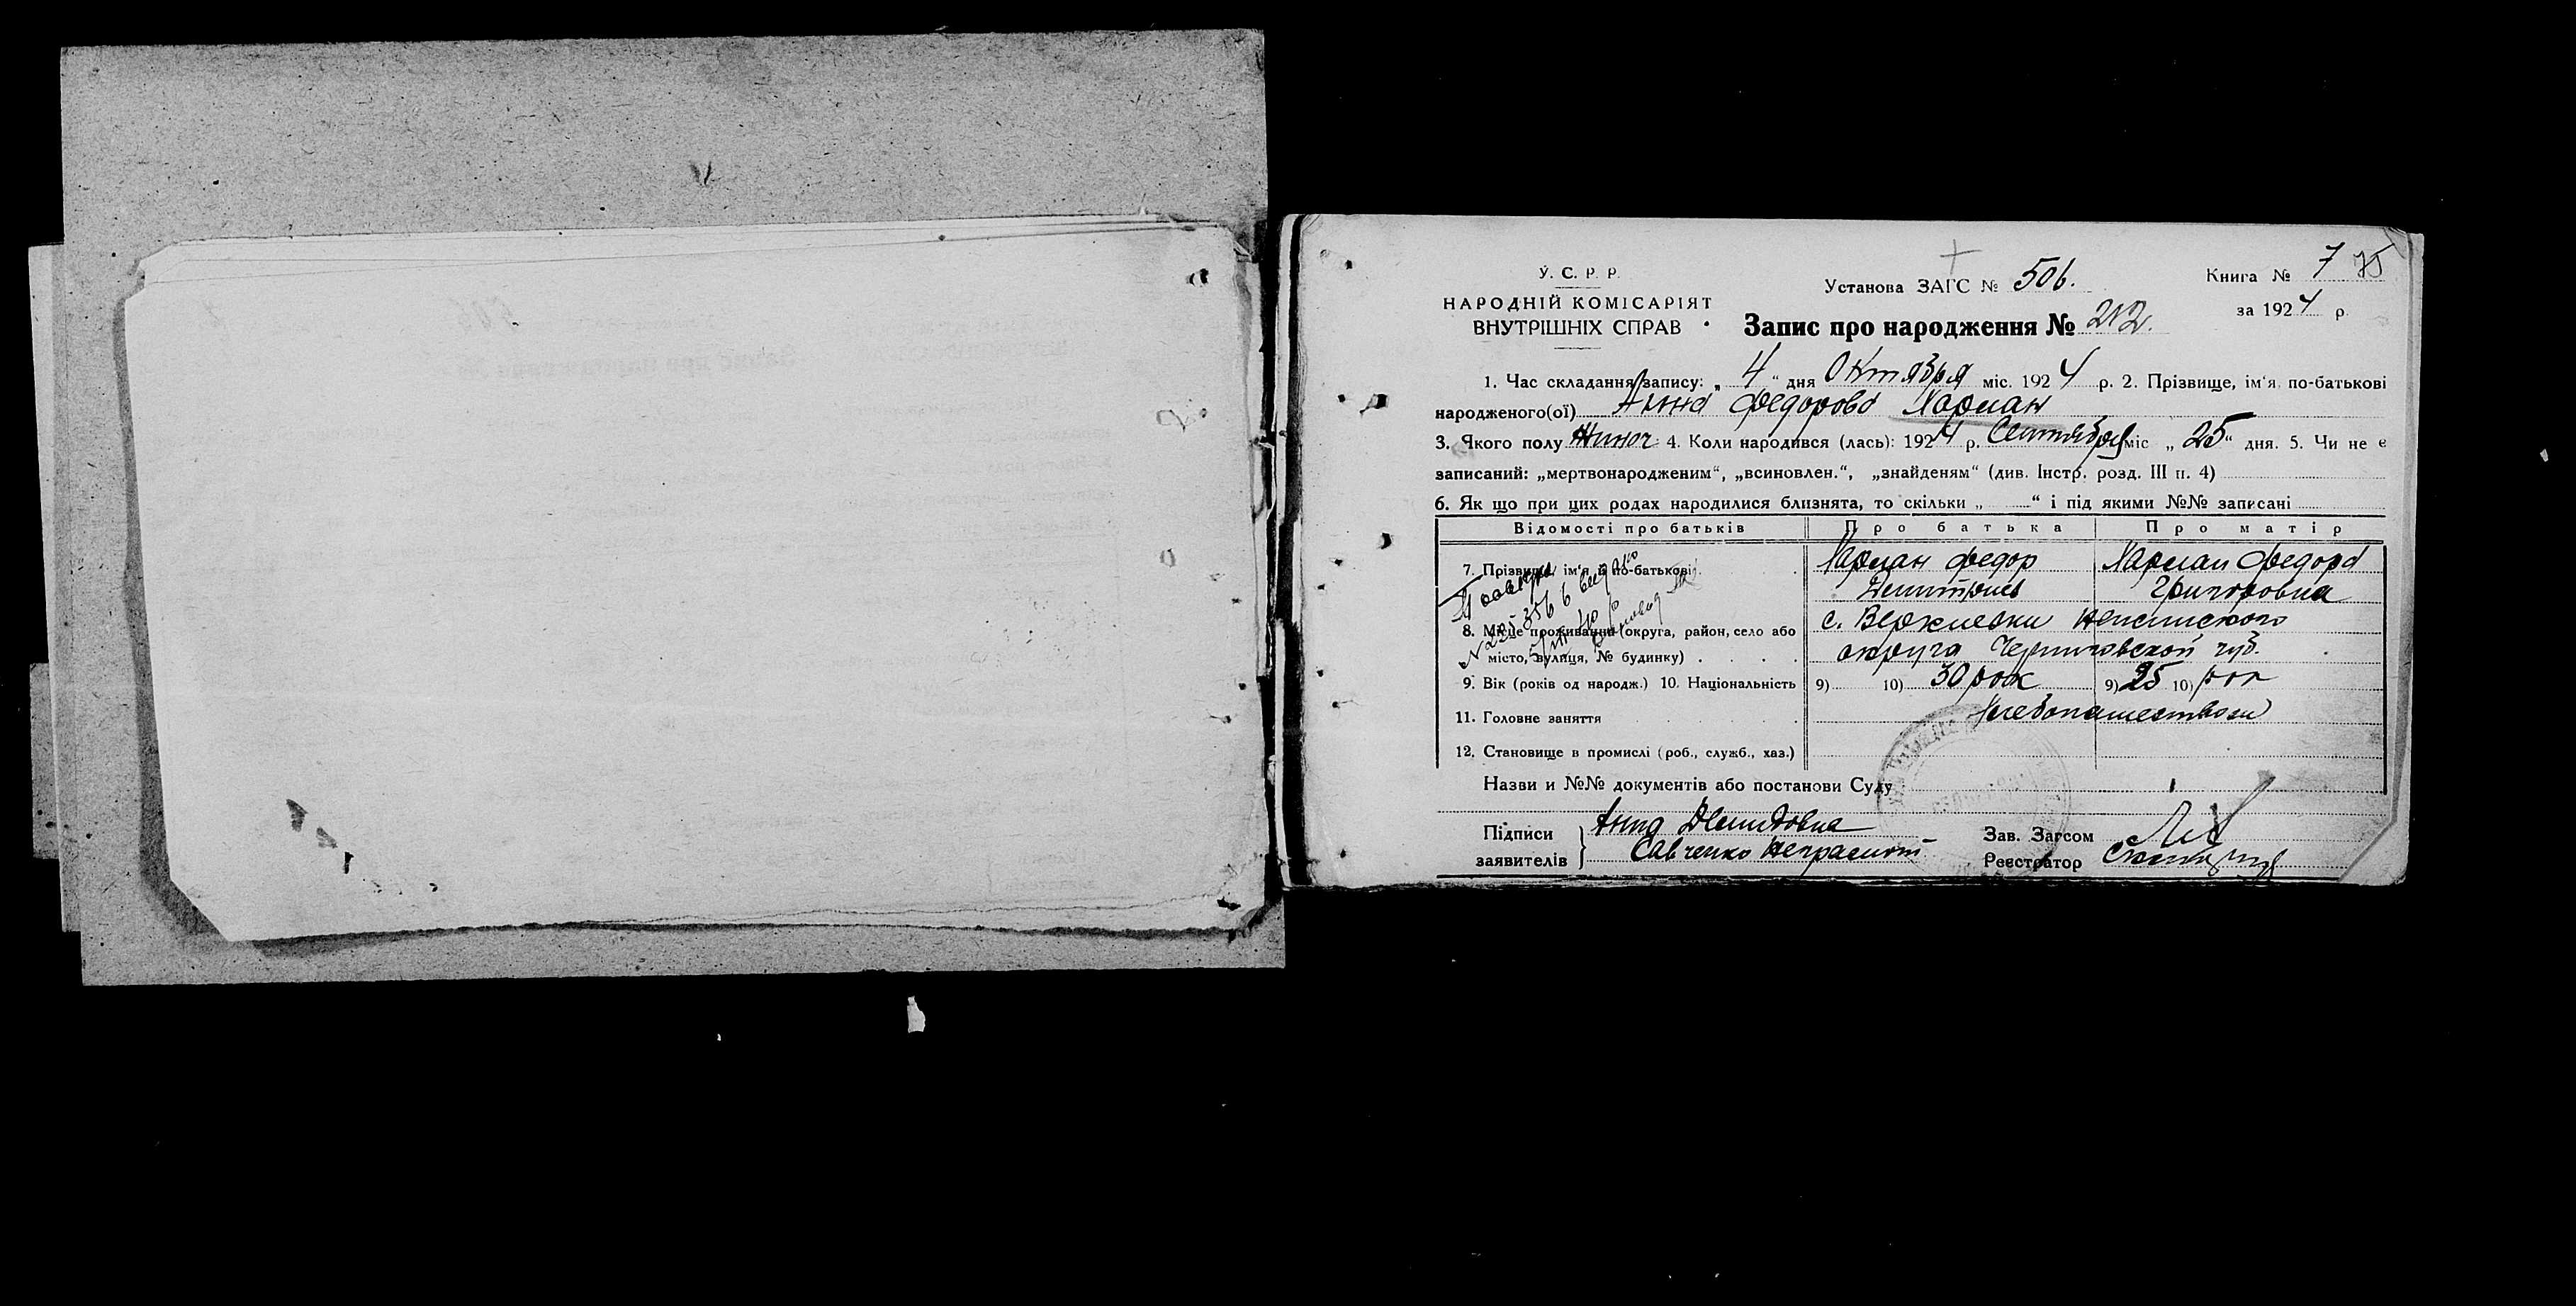 У. С. Р. Р.
НАРОДНІЙ КОМІСАРІЯТ
ВНУТРІШНІХ СПРАВ
Установа ЗАГС № 506.
Книга № 7 75
за 1924 р.
Запис про народження № 212.
1. Час складання запису: „ 4 “ дня Октября міс. 1924 р. 2. Прізвище, ім'я, по-батькові
народженого(ої) Анна Федорова Харман
3. Якого полу Жиноч. 4. Коли народився (лась): 1924 р. Сентября міс „ 25 “ дня. 5. Чи не є
записаний: „мертвонародженим“, „всиновлен.“, „знайденям“ (див. Інстр. розд. III п. 4)
6. Як що при цих родах народилися близнята, то скільки „ “ і під якими №№ записані
Відомості про батьків Про батька Про матір
7. Прізвище, ім'я й по-батькові Харман Федор Харман Федора
Дмитриев Григоровна
8. Місце проживання (округа, район, село або с. Веркиевки Неженского
місто, вулиця, № будинку) округа Черниговской губ.
9. Вік (років од народж.) 10. Національність 9) 10) 30 рок 9) 25 10) рок
11. Головне заняття Хлебопашеством
12. Становище в промислі (роб., служб., хаз.)
Назви и №№ документів або постанови Суду
Підписи Анна Демидовна Зав. Загсом
заявителів Савченко Неграмот Реєстратор